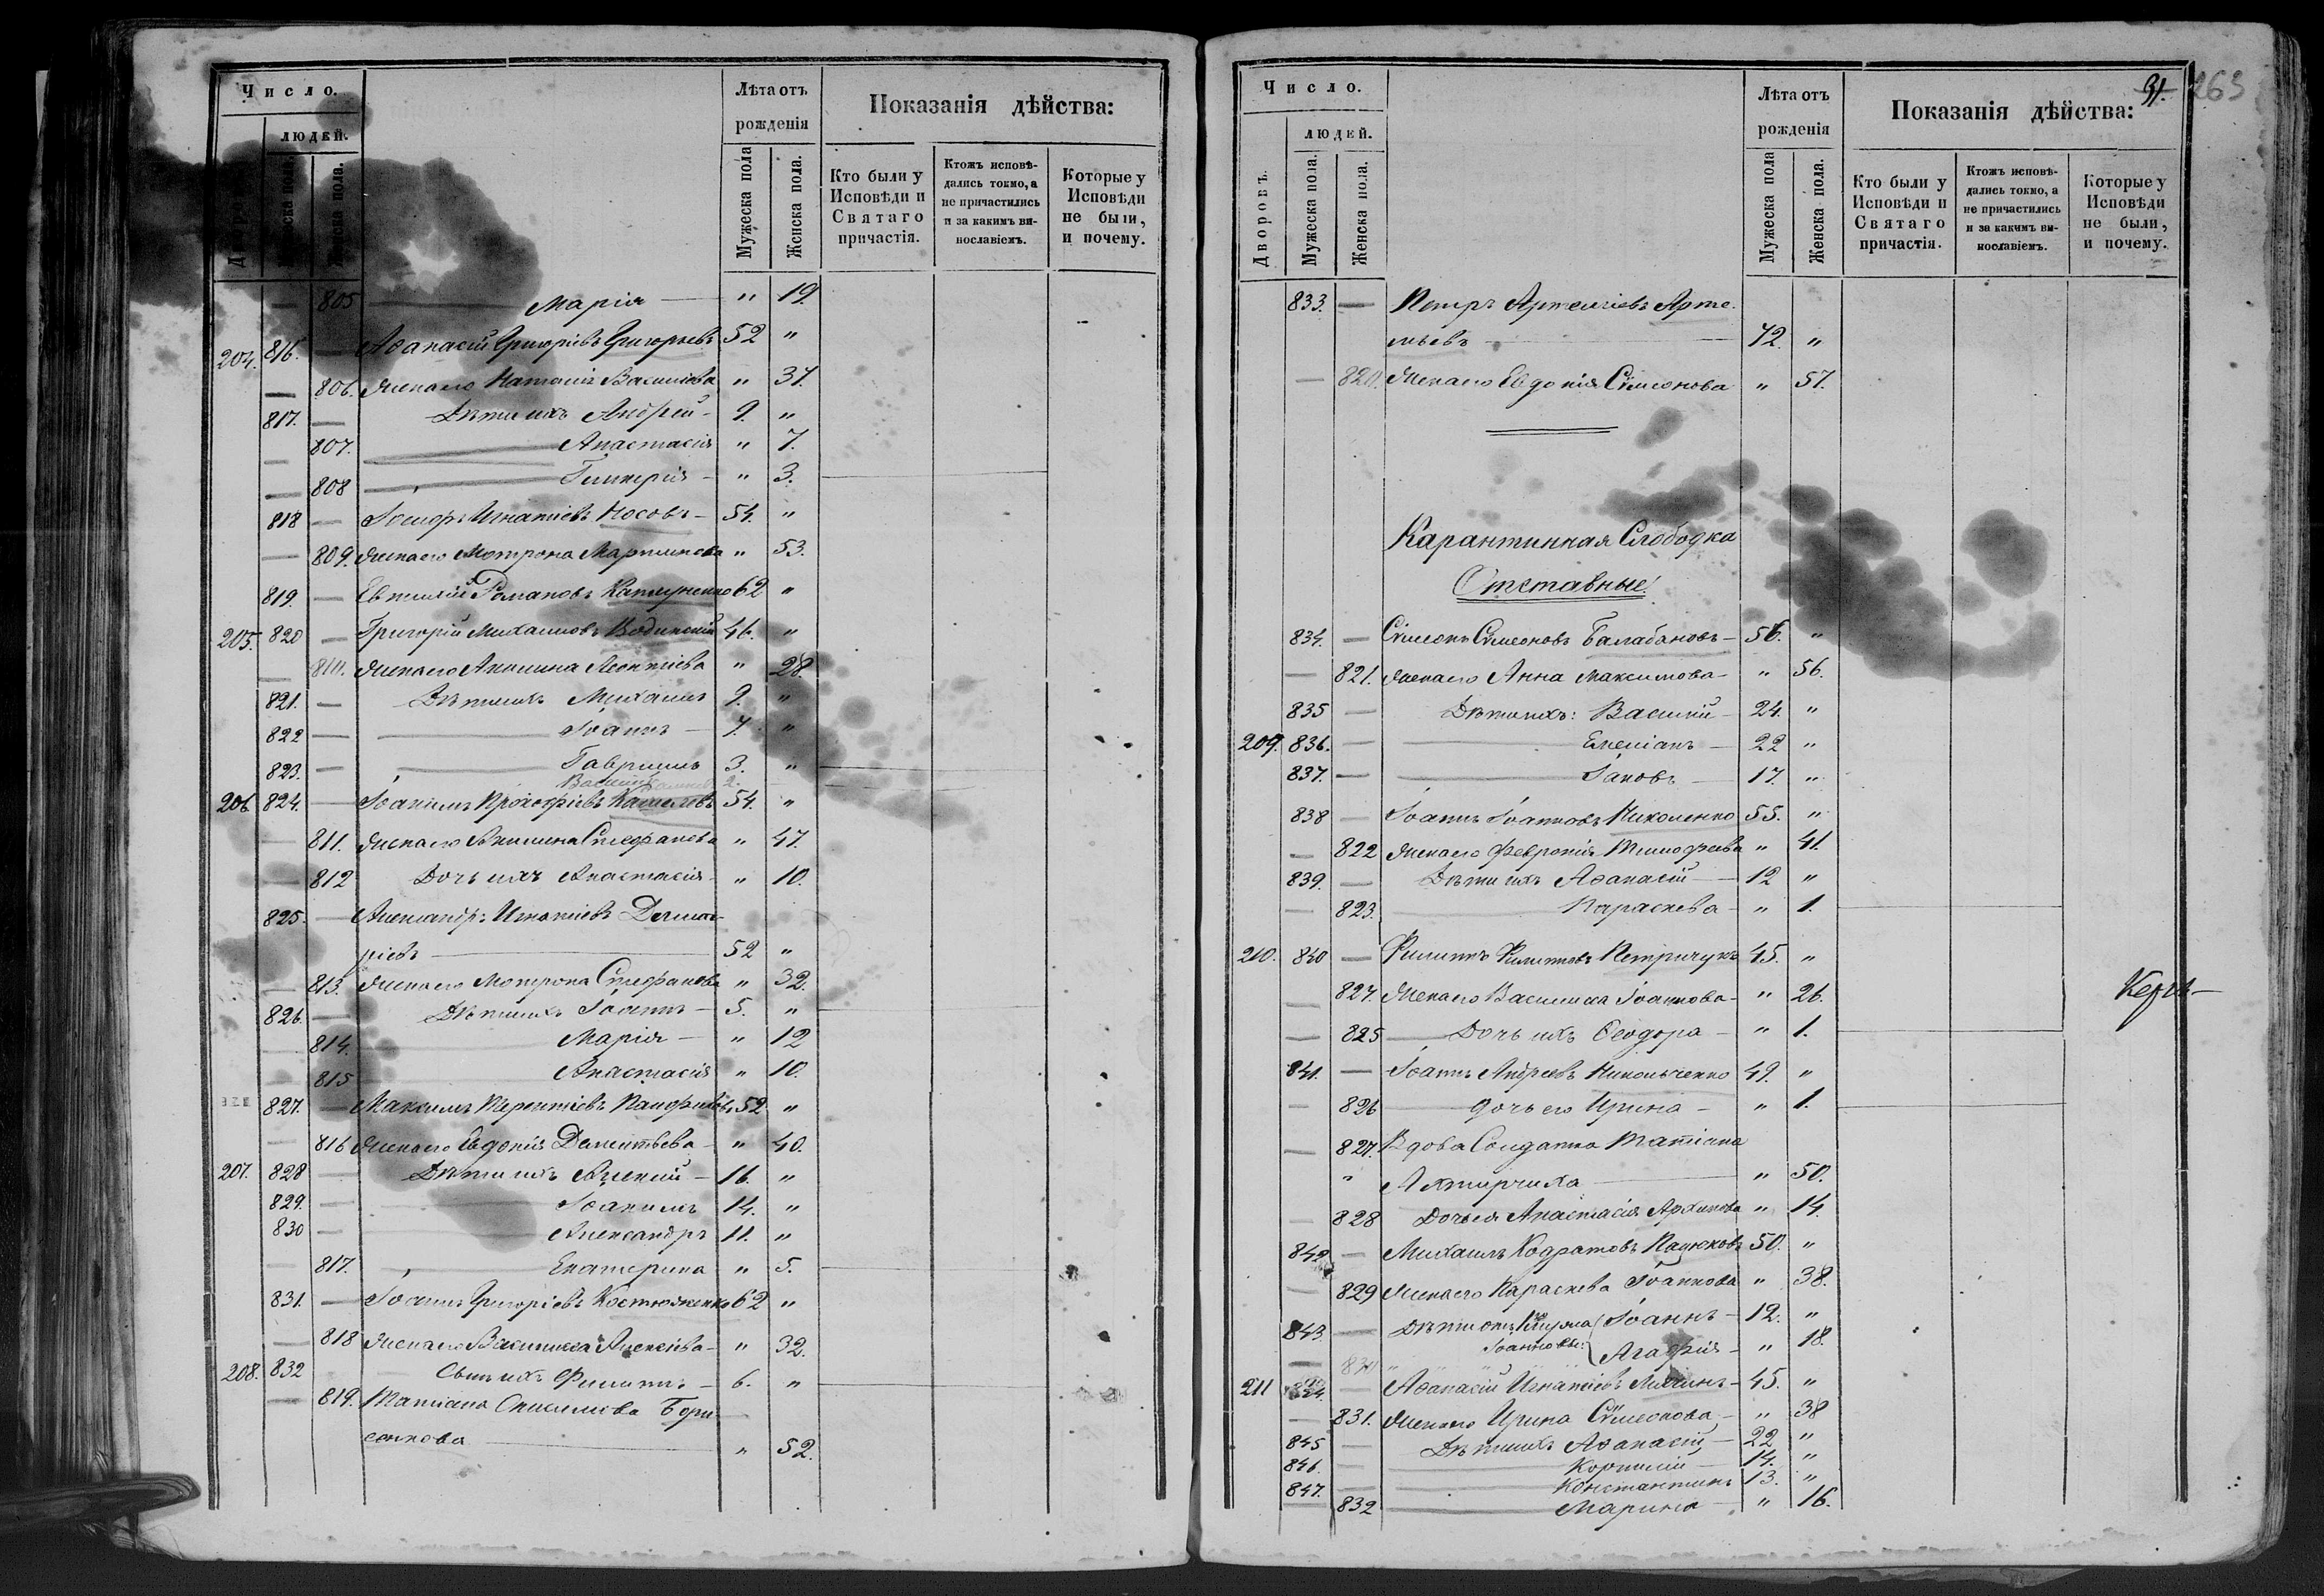 Число.
людей.
Женска пола.
Лѣта отъ рожденія
Мужеска пола
Женска пола.
Показанія дѣйства:
Кто были у Исповѣди и Святаго причастія.
Ктожъ исповѣдались токмо, а не причастились и за какимъ винославіемъ.
Которые у Исповѣди не были, и почему.
— 805 Марія — " 19.
204. 816. — Аѳанасій Григоріевъ Григорьевъ 52 "
— 806. Жена его Наталія Василіева " 37.
817. — Дѣти ихъ Андрей — 9. "
— 807. Анастасія " 7.
— 808 Гликерія — " 3.
818 — Іосифъ Игнатіевъ Носовъ — 54. "
— 809. Жена его Мотрона Мартинова " 53.
819. — Евтихій Романовъ 62 "
205. 820 — Григорій Михаиловъ Водинскій 46. "
— 810. Жена его Акилина Леонтіева " 28.
821. — Дѣти ихъ Михаилъ 9. "
822 — Іоаннъ — 7. "
823. — Гавріилъ 3. "
Василій 2.
206. 824. — Іоакимъ Прокофіевъ 54. "
— 811. Жена его Акилина Стефанова " 47.
— 812 Дочь ихъ Анастасія — " 10.
825. — Александръ Игнатіевъ Димит-
ріевъ — 52 "
— 813. Жена его Мотрона Стефанова " 32.
826. — Дѣти ихъ Іоаннъ — 5. "
— 814. Марія — " 12
— 815 Анастасія " 10.
827. — Максимъ Терентіевъ Панфиловъ 52 "
— 816 Жена его Евдокія Дементьева — " 40.
207. 828 — Дѣти ихъ Алексій — 16. "
829. — Іоакимъ 14. "
830 — Александръ 11. "
— 817. Екатерина " 5.
831. — Іоаннъ Григоріевъ Костюженко 62 "
— 818 Жена его Василисса Алексіева — " 32.
208. 832 Сынъ ихъ Филиппъ — 6. "
— 819. Татіана Онисимова Бори-
сенкова — " 52.
31. 263
Число.
людей.
Дворовъ.
Мужеска пола.
Женска пола.
Лѣта отъ рожденія
Мужеска пола
Женска пола.
Показанія дѣйства:
Кто были у Исповѣди и Святаго причастія.
Ктожъ исповѣдались токмо, а не причастились и за какимъ винославіемъ.
Которые у Исповѣди не были, и почему.
833. — Петръ Артеміевъ Арте-
мьевъ — 72. "
— 820. Жена его Евдокія Сѵмеонова " 57.
Карантинная Слободка
Отставные:
834. — Сѵмеонъ Сѵмеоновъ Балабановъ — 56. "
— 821. Жена его Анна Максимова — " 56.
835 — Дѣти ихъ: Василій — 24. "
209. 836. — Емеліанъ — 22 "
837. — Іаковъ — 17. "
838 — Іоаннъ Іоанновъ Николенко 55. "
— 822 Жена его Февронія Тимофеева " 41.
839. — Дѣти ихъ Аѳанасій — 12 "
— 823. Параскева — " 1.
210. 840 — Филиппъ Филиповъ Петричукъ 45. "
— 824. Жена его Василиса Іоаннова — " 26.
— 825 — Дочь ихъ Ѳеодора — " 1.
841. — Іоаннъ Андреевъ Никольченко 49. "
— 826 — дочь его Ирина — " 1.
— 827. Вдова Солдатка Татіана
" Ахтирчиха — " 50.
— 828 Дочь ея Анастасія Архипова " 14.
842. — Михаилъ Кодратовъ Падюковъ 50. "
— 829 Жена его Параскева Іоаннова " 38.
843. — Дѣти отъ 1го мужа Іоанновы: Іоаннъ — 12. "
— 830 Агафія — " 18.
211 844. — Аѳанасій Игнатіевъ Личинъ — 45. "
— 831. Жена его Ирина Сѵмеонова — " 38
845 — Дѣти ихъ Аѳанасій — 22 "
846. — Корнилій — 14. "
847. — Константинъ 13. "
— 832 Марина — " 16.